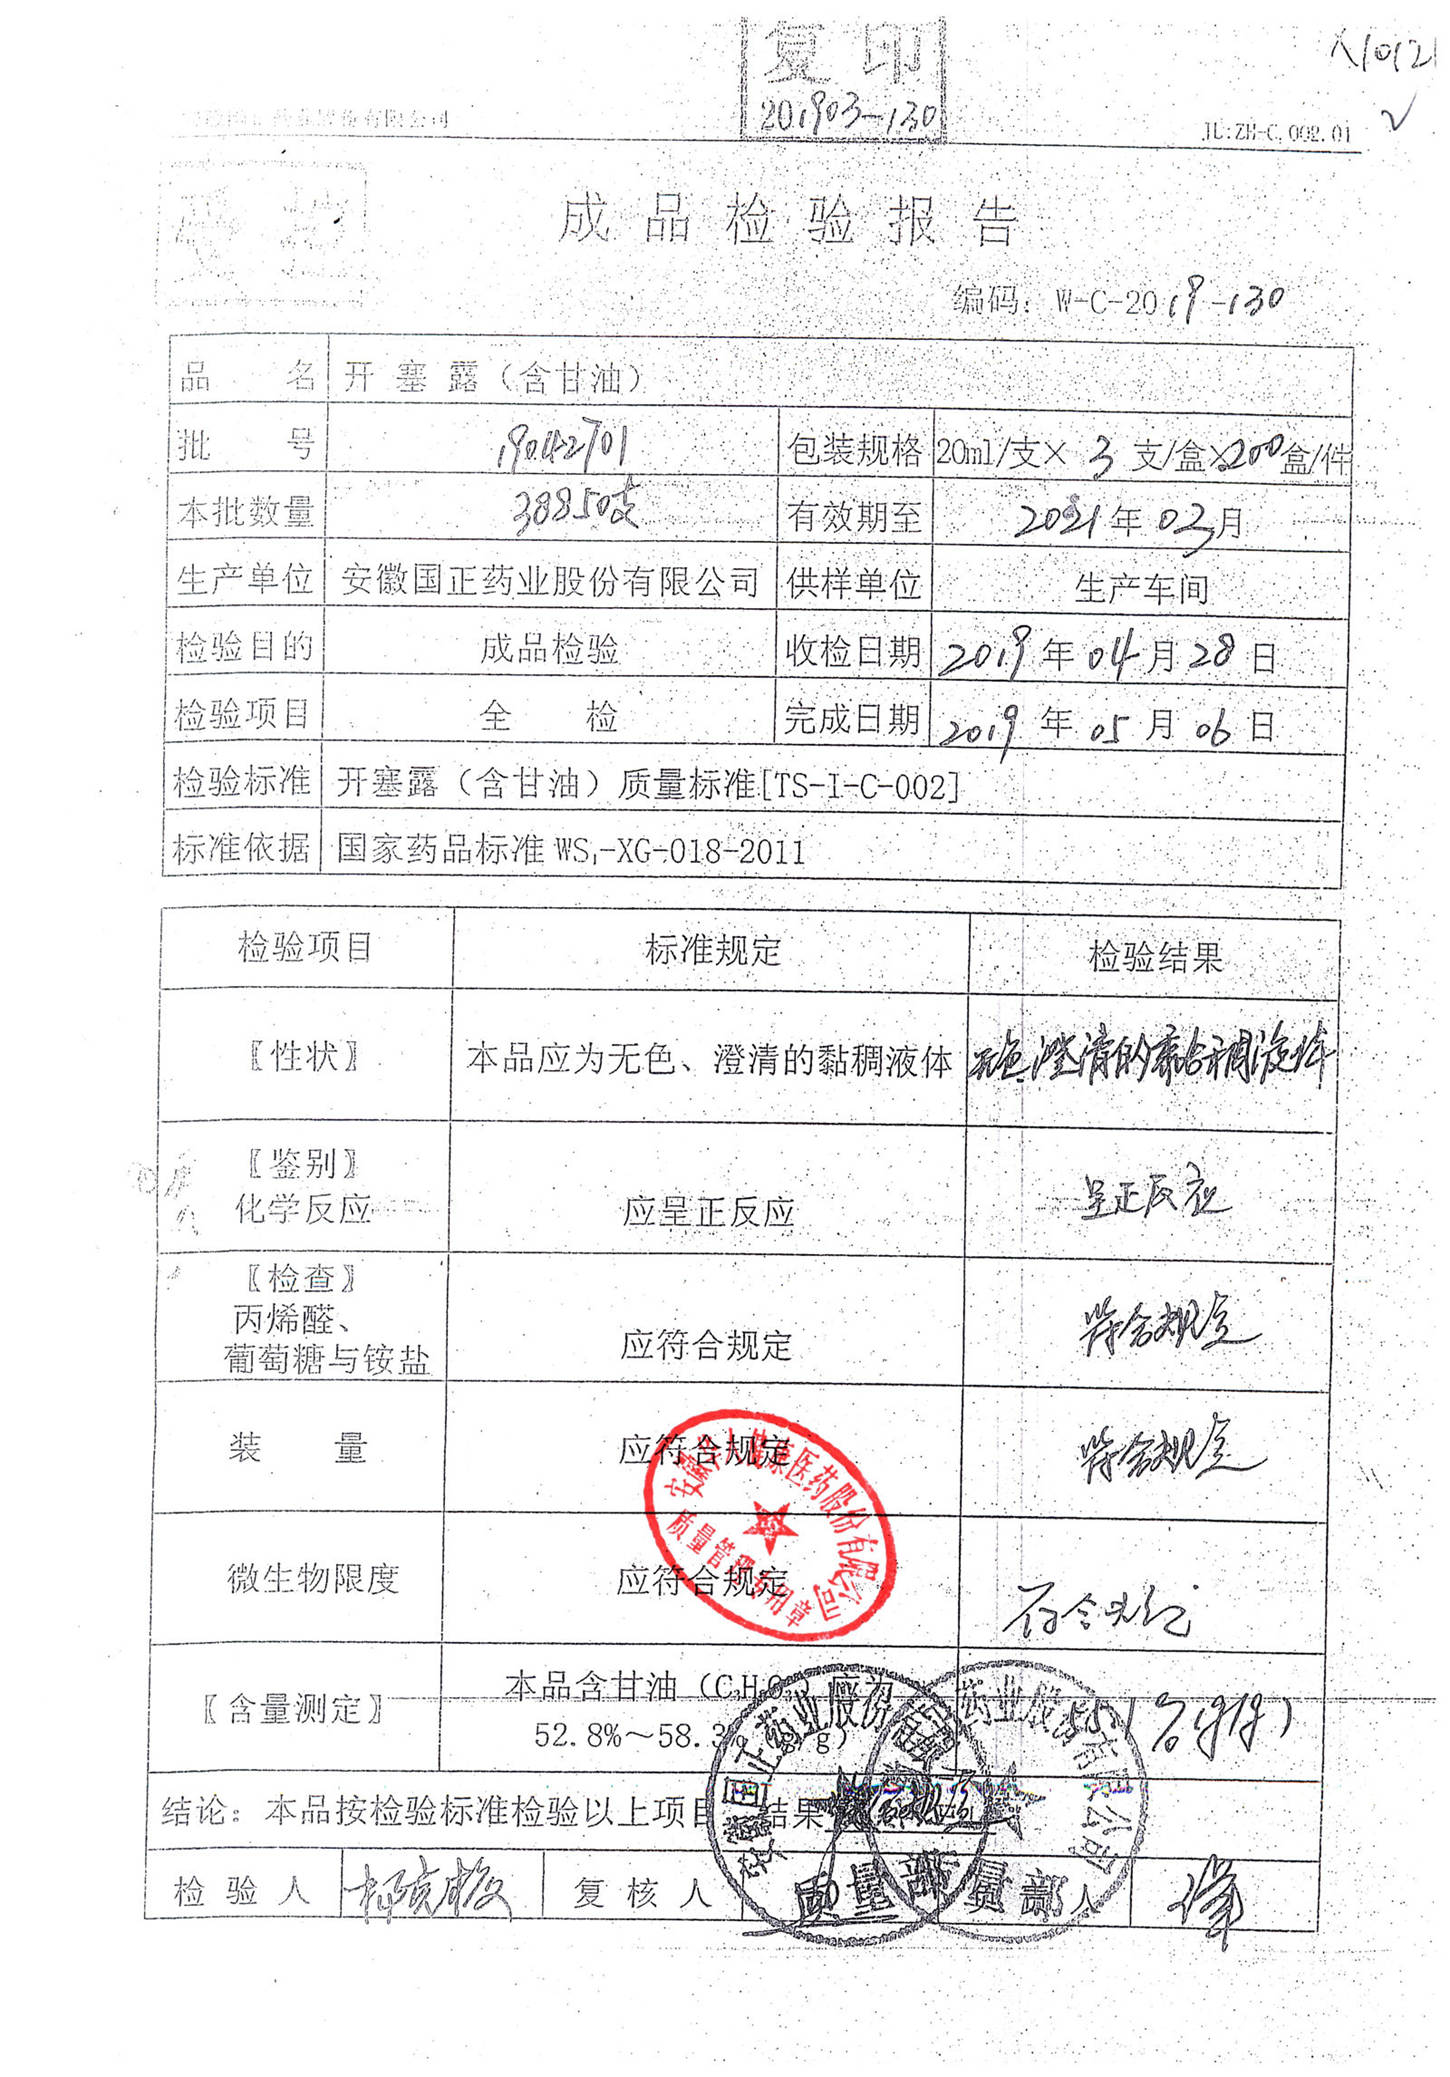 复印
201903-130
JL:ZH-C.002.01
成品检验报告
编码: W-C-2019-130
品 名 开塞露（含甘油）
批 号 19042701 包装规格 20ml/支×3支/盒×200盒/件
本批数量 38850支 有效期至 2021年03月
生产单位 安徽国正药业股份有限公司 供样单位 生产车间
检验目的 成品检验 收检日期 2019年04月28日
检验项目 全 检 完成日期 2019年05月06日
检验标准 开塞露（含甘油）质量标准[TS-I-C-002]
标准依据 国家药品标准 WS₁-XG-018-2011
检验项目 标准规定 检验结果
〖性状〗 本品应为无色、澄清的黏稠液体 无色澄清的黏稠液体
〖鉴别〗
化学反应 应呈正反应 呈正反应
〖检查〗
丙烯醛、
葡萄糖与铵盐 应符合规定 符合规定
装 量 应符合规定 符合规定
微生物限度 应符合规定 符合规定
安徽华人健康医药股份有限公司
质量管理专用章
〖含量测定〗 本品含甘油（C₃H₈O₃）应为
52.8%～58.3%（g/g）
结论：本品按检验标准检验以上项目 结果
安徽国正药业股份有限公司
质量部
检验人 复核人 负责人